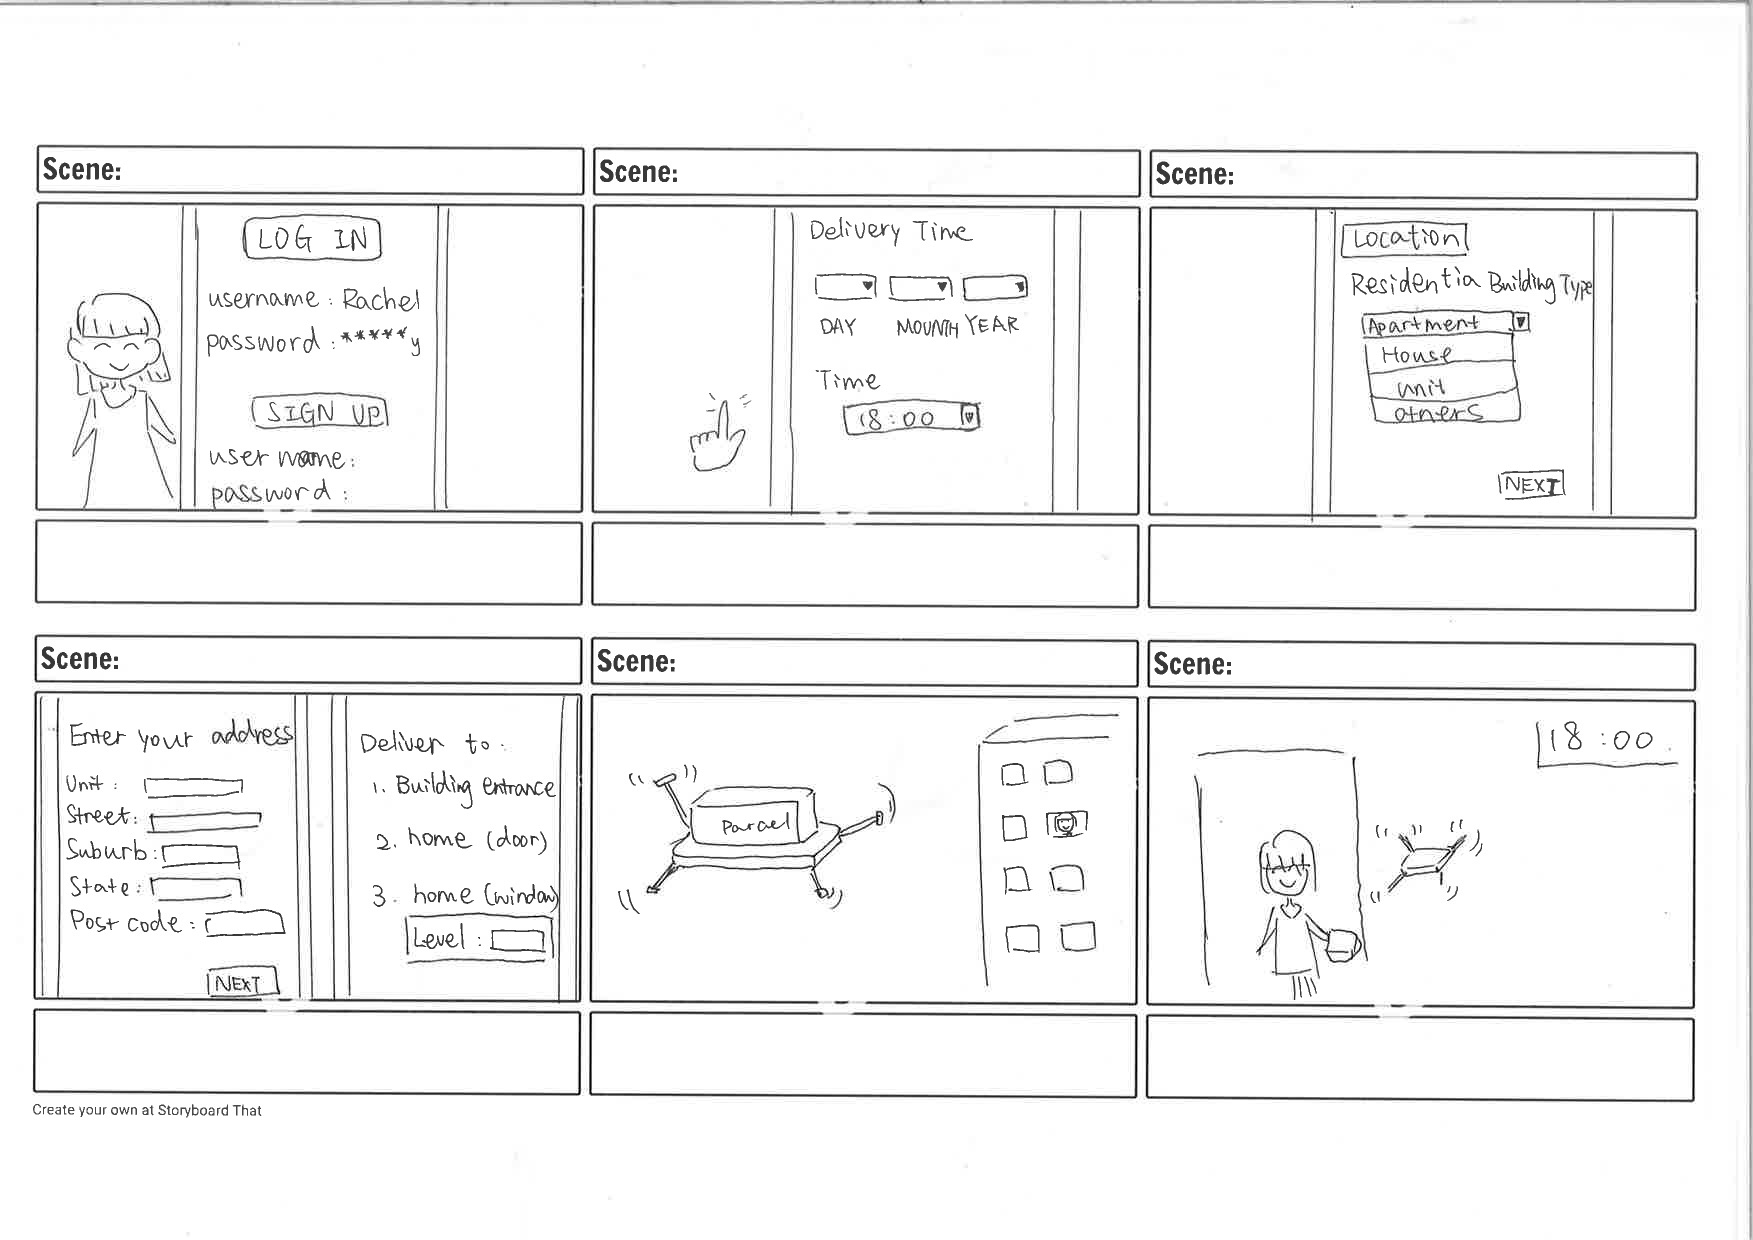 Scene:
LOG IN
username : Rachel
password : *****y
SIGN UP
user name :
password :
Scene:
Delivery Time
DAY MOUNTH YEAR
Time
18:00
Scene:
Location
Residentia Building Type
Apartment
House
unit
others
NEXT
Scene:
Enter your address
Unit :
Street :
Suburb :
State :
Post code :
NEXT
Deliver to :
1. Building entrance
2. home (door)
3. home (window)
Level :
Scene:
Parcel
Scene:
18:00
Create your own at Storyboard That